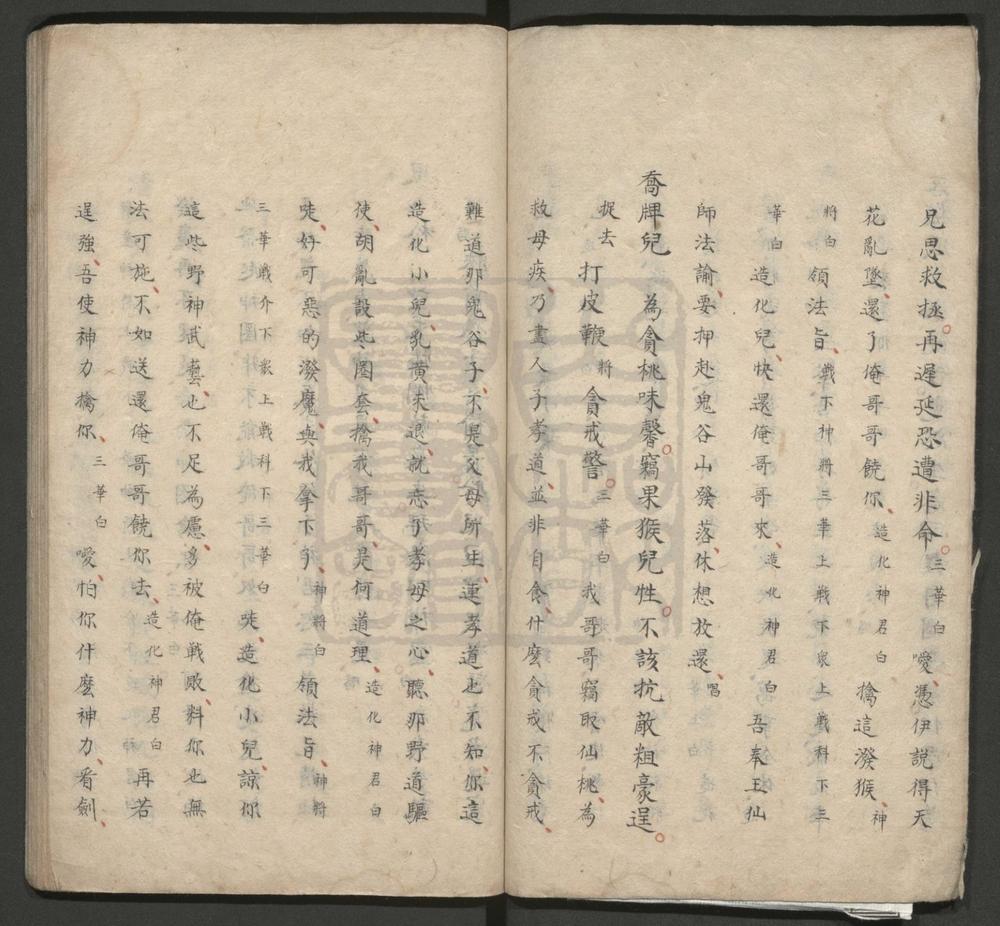 兄思救拯再遲延恐遭非命三華白噯憑伊說得天
花亂墜還了俺哥哥饒你造化神君白擒這潑猴神
將白領法旨戰下神將三華上戰下衆上戰科下三
華白造化兒快還俺哥哥來造化神君白吾奉王仙
師法諭要押赴鬼谷山發落休想放還唱
喬牌兒為貪桃味馨竊果猴兒性不該抗敵粗豪逞
捉去打皮鞭將貪戒警三華白我哥哥竊取仙桃為
救母疾乃盡人子孝道並非自食什麼貪戒不貪戒
難道那鬼谷子不是父母所生連孝道也不知你這
造化小兒乳黃未退就忘了孝母之心聽那野道驅
使胡亂設此圈套擒我哥哥是何道理造化神君白
唗好可惡的潑魔與我拿下了神將白領法旨神將
三華戰介下衆上戰科下三華白唗造化小兒諒你
這些野神武藝也不足為慮多被俺戰敗料你也無
法可施不如送還俺哥哥饒你去造化神君白再若
逞強吾使神力擒你三華白噯怕你什麼神力看劍